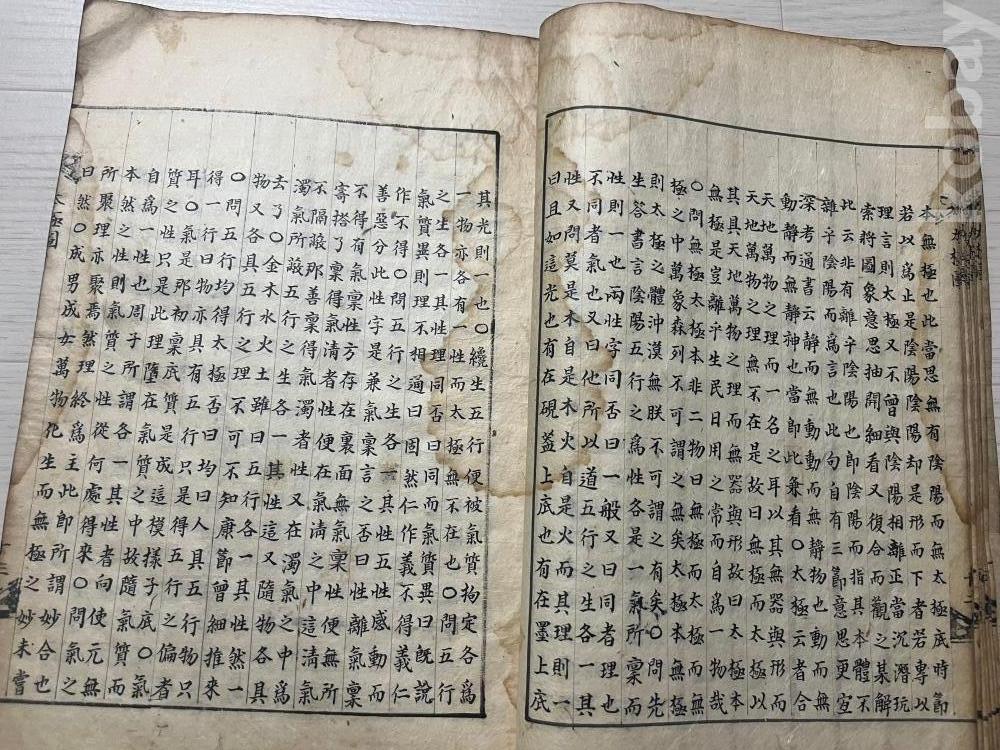 本無極也此當思無有陰陽而無太極底時節
若以爲止是陰陽陰陽却是形而下者若專以
理言則太極又不曾與陰陽相離正當沉潛玩
索將圖象意思抽開細看又復合而觀之某解
此云非有離乎陰陽也卽陰陽而指其本體不
雜乎陰陽而爲言也此句自有三節意思更宜
深考通書云靜而無動動而無靜物也動而無
動靜而無靜神也當卽此兼看○太極云者合
天地萬物之理而一名之耳以其無器與形而
天地萬物之理無不在是故曰無極而太極以
其具天地萬物之理而無器與形故曰太極本
無極是豈離乎生民日用之常而自爲一物哉
○無極太極本非二物曰無極而太極而無
極之中萬象森列不可謂之無矣太極本無極
則太極之體沖漠無朕不可謂之有矣○問先
生答書言陰陽五行之爲性各是一氣所稟而
性則一也兩性字同否曰一般又曰同者理也
不同者氣也又曰他所以道五行之生各一其
性又問莫是木自是木火自是火而其理則一
曰且如這光也有在硯蓋上底也有在墨上底
其光則一也○纔生五行便被氣質拘定各爲
一物亦各有一性而太極無不在也○問五行
之生各一其性理同否曰同而氣質異曰旣說
氣質異則理不相通曰固然仁作義不得義仁
作不得○問五行之生各一其性五性感動而
善惡分此性字是兼氣稟言之否曰性離氣稟
不得有氣稟性方存在裏面無氣稟性便無所
寄搭了稟得氣清者性便在氣清之中這清氣
不隔蔽那善稟得氣濁者性又在濁氣之中爲
濁氣所蔽五行之生各一其性這又隨物各具
去了○金木水火土雖曰五行各一其性然一
物又各具五行之理不可不知康節曾細推來
○問五行均得太極否曰均曰人具五行物只
得一行曰物亦具有五行只是得五行之偏者
耳○氣是那初稟底質是成這模樣子底○氣
質之性只是此理墮在氣質之中故隨氣質而
自爲一性周子所謂各一其性者向使元無
本然之性則氣質之性從何處得來○問氣之
所聚理亦聚焉然理終爲主此卽所謂妙合也
曰然○成男成女萬物化生而無極之妙未嘗
太極圖
kobay